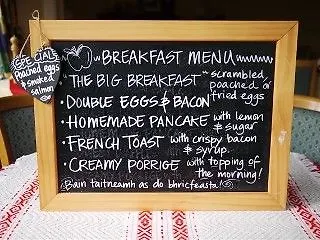 SPECIALS
Poached eggs
& smoked
salmon
BREAKFAST MENU
"THE BIG BREAKFAST" scrambled,
poached or
fried eggs
• DOUBLE EGGS & BACON
• HOMEMADE PANCAKE with lemon
& sugar
• FRENCH TOAST with crispy bacon
& syrup.
• CREAMY PORRIGE with topping of
the morning!
Bain taitneamh as do bhricfeasta!